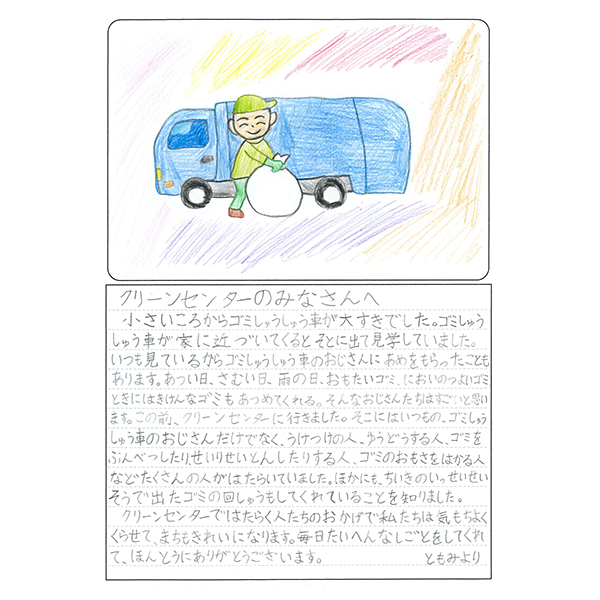 クリーンセンターのみなさんへ
小さいころからゴミしゅうしゅう車が大すきでした。ゴミしゅう
しゅう車が家に近づいてくるとそとに出て見学していました。
いつも見ているからゴミしゅうしゅう車のおじさんにあめをもらったことも
あります。あつい日、さむい日、雨の日、おもたいゴミ、においのつよいゴミ
ときにはきけんなゴミもあつめてくれる。そんなおじさんたちはすごいと思い
ます。この前、クリーンセンターに行きました。そこにはいつもの、ゴミしゅう
しゅう車のおじさんだけでなく、うけつけの人、ゆうどうする人、ゴミを
ぶんべつしたり、せいりせいとんしたりする人、ゴミのおもさをはかる人
などたくさんの人がはたらいていました。ほかにも、ちいきのいっせいせい
そうで出たゴミの回しゅうもしてくれていることを知りました。
クリーンセンターではたらく人たちのおかげで私たちは気もちよく
くらせて、まちもきれいになります。毎日たいへんなしごとをしてくれ
て、ほんとうにありがとうございます。 ともみより